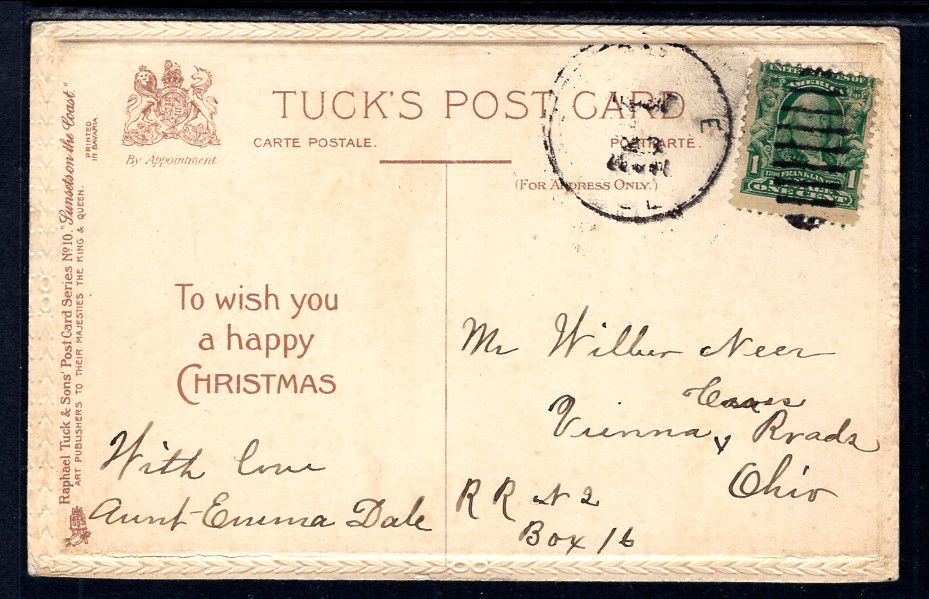 Raphael Tuck & Sons' Post Card Series No 10. "Sunsets on the Coast."
ART PUBLISHERS TO THEIR MAJESTIES THE KING & QUEEN.
PRINTED
IN BAVARIA
By Appointment.
TUCK'S POST CARD
CARTE POSTALE.
POSTKARTE.
(FOR ADDRESS ONLY.)
UNITED STATES OF
AMERICA
FRANKLIN
1 ONE CENT 1
To wish you
a happy
CHRISTMAS
With love
Aunt Emma Dale
Mr Wilbur Neer
Vienna, Roads
Ohio
R R N 2
Box 16